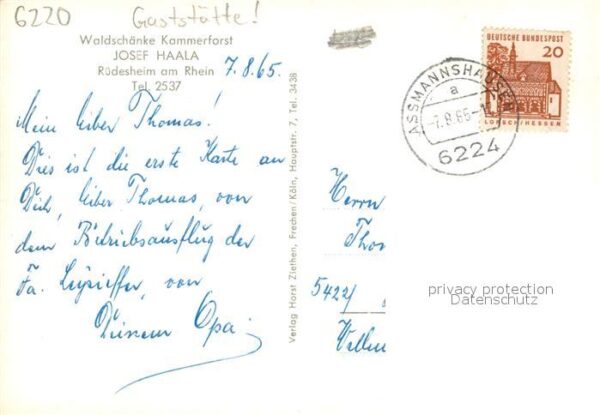 6220 Gaststätte!
Waldschänke Kammerforst
JOSEF HAALA
Rüdesheim am Rhein
Tel. 2537
7.8.65.
Mein lieber Thomas!
Dies ist die erste Karte an
Dich, lieber Thomas, von
dem Betriebsausflug der
Fa. Leysieffer, von
Deinem Opa.
Verlag Horst Ziethen, Frechen/Köln, Hauptstr. 7, Tel. 3438
DEUTSCHE BUNDESPOST
20
LORSCH/HESSEN
ASSMANNSHAUSEN
a
-7.8.65-1
6224
Herrn
Tho
5422/
privacy protection
Datenschutz